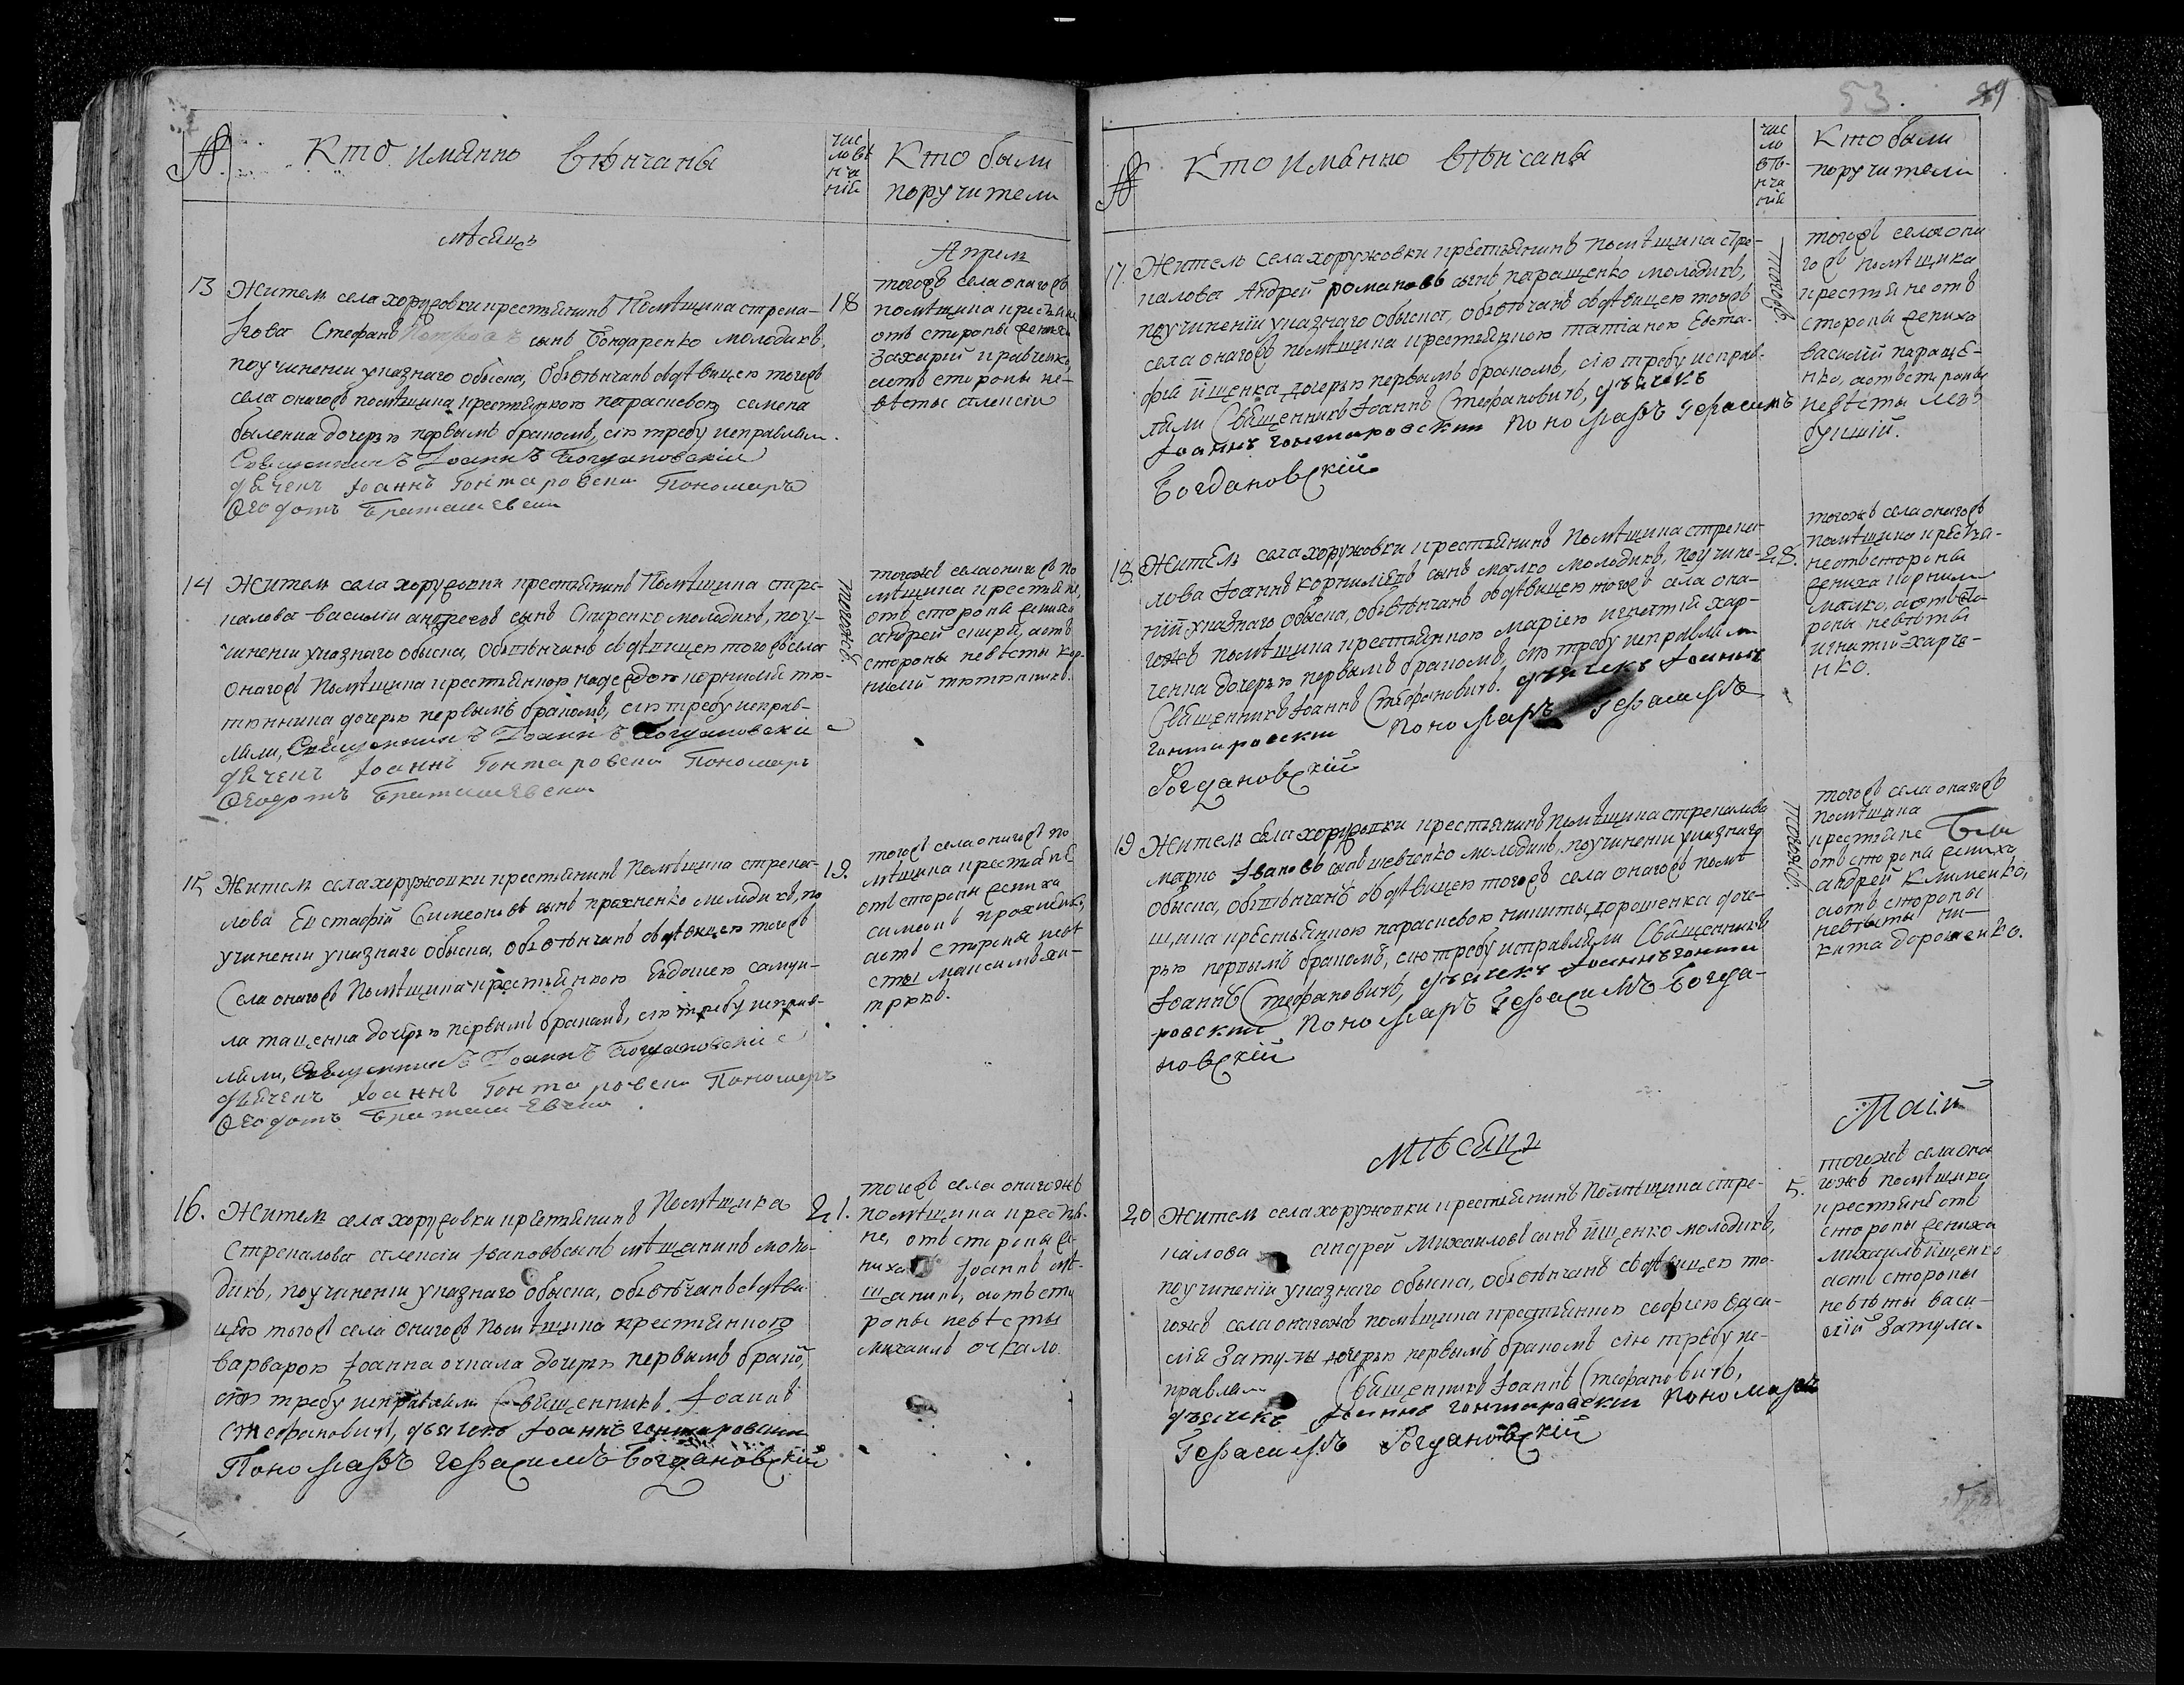 №
Кто имянно вѣнчаны
чис
ло вѣ
нча
нія
Кто были
поручители
мѣсяцъ
Априль
13 Житель села хоружовки крестьянинъ Помѣщика стрека-
лова Стефанъ сынъ Бондаренко молодикъ,
поучиненіи указнаго обыска, Обвѣнчанъ здѣвицею тогожъ
села оногожъ помѣщика крестьянкою параскевою семена
дочерью первымъ бракомъ, сію требу исправляли
Священникъ Іоаннъ Богдановскій
дьячекъ Іоаннъ Гонтаровски Пономарь
Ѳеодотъ
18
тогожъ села оногожъ
помѣщика крестьяне
отъ стороны жениха
захарій кравченко,
аотъ стороны не-
вѣсты алексій
14 Житель села хоружовки крестьянинъ Помѣщика стре-
калова василій андреевъ сынъ Спиренко молодикъ, поу-
чиненіи указнаго обыска, обвѣнчанъ здѣвицею тогожъ села
Оногожъ Помѣщика крестьянкою надеждою корнилія тю-
тюнника дочерью первымъ бракомъ, сію требу исправ-
ляли, Священникъ Іоаннъ Богдановскій
дьячекъ Іоаннъ Гонтаровски Пономарь
Ѳеодотъ
тогожъ.
тогожъ села оногожъ по
мѣщика крестьяне,
отъ стороны жениха
андрей спира, аотъ
стороны невѣсты кор-
нилій тютюнникъ.
15 Житель села хоружовки крестьянинъ Помѣщика стрека-
лова Евстафій Симеоновъ сынъ прахненко молодикъ, по
учиненіи указнаго обыска, обвѣнчанъ здѣвицею тогожъ
Села оногожъ Помѣщика крестьянкою Евдокіею самуи-
ла дочерью первымъ бракомъ, сію требу исправ-
ляли, Священникъ Іоаннъ Богдановскій
дьячекъ Іоаннъ Гонтаровски Пономарь
Ѳеодотъ
19.
тогожъ села оногожъ по
мѣщика крестьяне
отъ стороны жениха
симеонъ прахненко,
аотъ стороны невѣ
сты максимъ
16. Житель села хоружовки крестьянинъ Помѣщика
Стрекалова алексій Ивановъ сынъ мѣщанинъ моло-
дикъ, поучиненіи указнаго обыска, обвѣнчанъ здѣви-
цею тогожъ села оногожъ Помѣщика крестьянкою
варварою Іоанна очкала дочерью первымъ брако,
сію требу исправляли Священникъ Іоаннъ
Стефановичъ, дьячекъ Іоаннъ гонтаровски
Пономаръ Герасимъ Богдановскій
21.
тогожъ села оногожъ
помѣщика крестья-
не, отъ стороны же-
ниха Іоаннъ мѣ-
щанинъ, аотъ сто
роны невѣсты
михаилъ очкало.
53. 49
№
Кто имянно вѣнчаны
чис
ло
вѣ-
нча
нія
Кто были
поручители
17. Житель села хоружовки крестьянинъ помѣщика стре-
калова Андрей романовъ сынъ паращенко молодикъ,
поучиненіи указнаго обыска, обвѣнчанъ здѣвицею тогожъ
села оногожъ помѣщика крестьянкою татіаною Евста-
фія йщенка дочерью первымъ бракомъ, сію требу исправ-
ляли Священникъ Іоаннъ Стефановичъ, дьячекъ
Іоаннъ гонтаровски пономаръ Герасимъ
Богдановскій
тогожъ.
тогожъ села оно
гожъ помѣщика
крестьяне отъ
стороны жениха
василій параще-
нко, аотъ стороны
невѣсты
18 Житель села хоружовки крестьянинъ Помѣщика стрека-
лова Іоаннъ корниліевъ сынъ малко молодикъ, поучине-
ніи указнаго обыска, обвѣнчанъ здѣвицею тогожъ села оно-
гожъ помѣщика крестьянкою маріею игнатія хар-
ченка дочерью первымъ бракомъ, сію требу исправляли
Священникъ Іоаннъ Стефановичъ. дьячекъ Іоаннъ
гонтаровски пономаръ Герасимъ
Богдановскій
28.
тогожъ села оногожъ
помѣщика крестья-
не отъ стороны
жениха корнили
малко, аотъ сто-
роны невѣсты
игнатій харче-
нко.
19 Житель села хоружовки крестьянинъ помѣщика стрекалова
марко Ивановъ сынъ шевченко молодикъ, поучиненіи указнаго
обыска, обвѣнчанъ здѣвицею тогожъ села оногожъ помѣ-
щика крестьянкою параскевою никиты дорошенка доче-
рью первымъ бракомъ, сію требу исправляли Священникъ
Іоаннъ Стефановичъ, дьячекъ Іоаннъ гонта
ровски пономаръ Герасимъ Богда-
новскій
тогожъ.
тогожъ села оногожъ
помѣщика
крестьяне
отъ стороны жениха
андрей клименко,
аотъ стороны
невѣсты ни-
кита дорошенко.
мѣсяцъ
Маій
20 Житель села хоружовки крестьянинъ Помѣщика стре-
калова андрей михаиловъ сынъ йщенко молодикъ,
поучиненіи указнаго обыска, обвѣнчанъ здѣвицею то-
гожъ села оногожъ помѣщика крестьянкою софіею васи-
лія Затулы дочерью первымъ бракомъ сію требу ис-
правляли Священникъ Іоаннъ Стефановичъ,
дьячекъ Іоаннъ гонтаровски пономаръ
Герасимъ Богдановскій
5.
тогожъ села оно
гожъ помѣщика
крестьяне отъ
стороны жениха
михаилъ йщенко
аотъ стороны
невѣсты васи-
лій Затула.